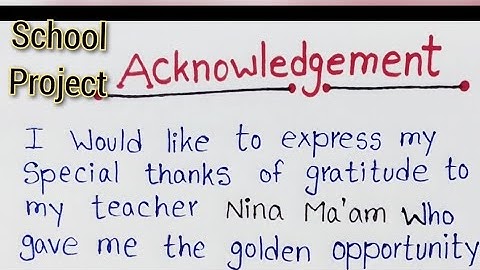 School
Project
Acknowledgement
I Would like to express my
Special thanks of gratitude to
my teacher Nina Ma'am Who
gave me the golden opportunity